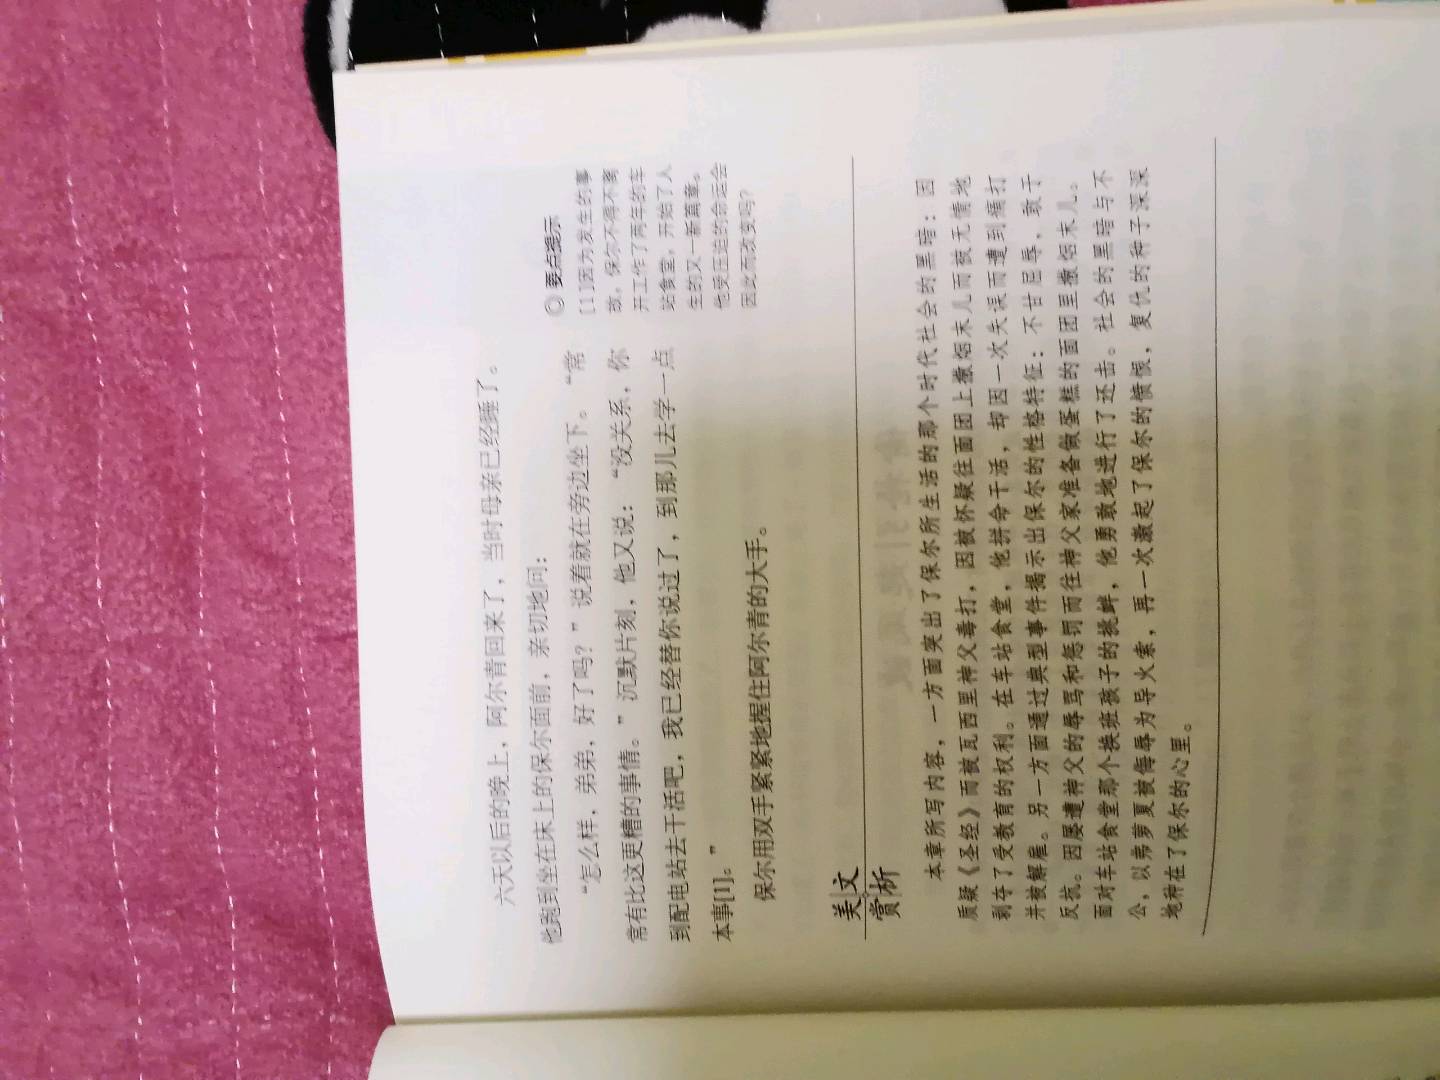 六天以后的晚上，阿尔青回来了，当时母亲已经睡了。
他跑到坐在床上的保尔面前，亲切地问：
“怎么样，弟弟，好了吗？”说着就在旁边坐下。“常
常有比这更糟的事情。”沉默片刻，他又说：“没关系，你
到配电站去干活吧，我已经替你说过了，到那儿去学一点
本事[1]。”
保尔用双手紧紧地握住阿尔青的大手。
◎ 要点提示
[1]因为发生的事
故，保尔不得不离
开工作了两年的车
站食堂，开始了人
生的又一新篇章。
他受压迫的命运会
因此而改变吗？
美文
赏析
本章所写内容，一方面突出了保尔所生活的那个时代社会的黑暗：因
质疑《圣经》而被瓦西里神父毒打，因被怀疑往面团上撒烟末儿而被无情地
剥夺了受教育的权利。在车站食堂，他拼命干活，却因一次失误而遭到痛打
并被解雇。另一方面通过典型事件揭示出保尔的性格特征：不甘屈辱，敢于
反抗。因屡遭神父的辱骂和惩罚而往神父家准备做蛋糕的面团里撒烟末儿。
面对车站食堂那个换班孩子的挑衅，他勇敢地进行了还击。社会的黑暗与不
公，以弗萝夏被侮辱为导火索，再一次激起了保尔的愤恨，复仇的种子深深
地种在了保尔的心里。